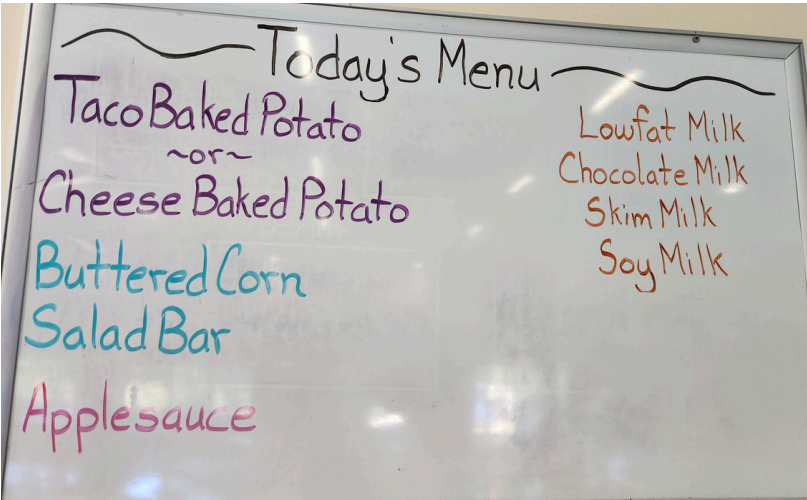 Today's Menu
Taco Baked Potato
~or~
Cheese Baked Potato
Buttered Corn
Salad Bar
Applesauce
Lowfat Milk
Chocolate Milk
Skim Milk
Soy Milk